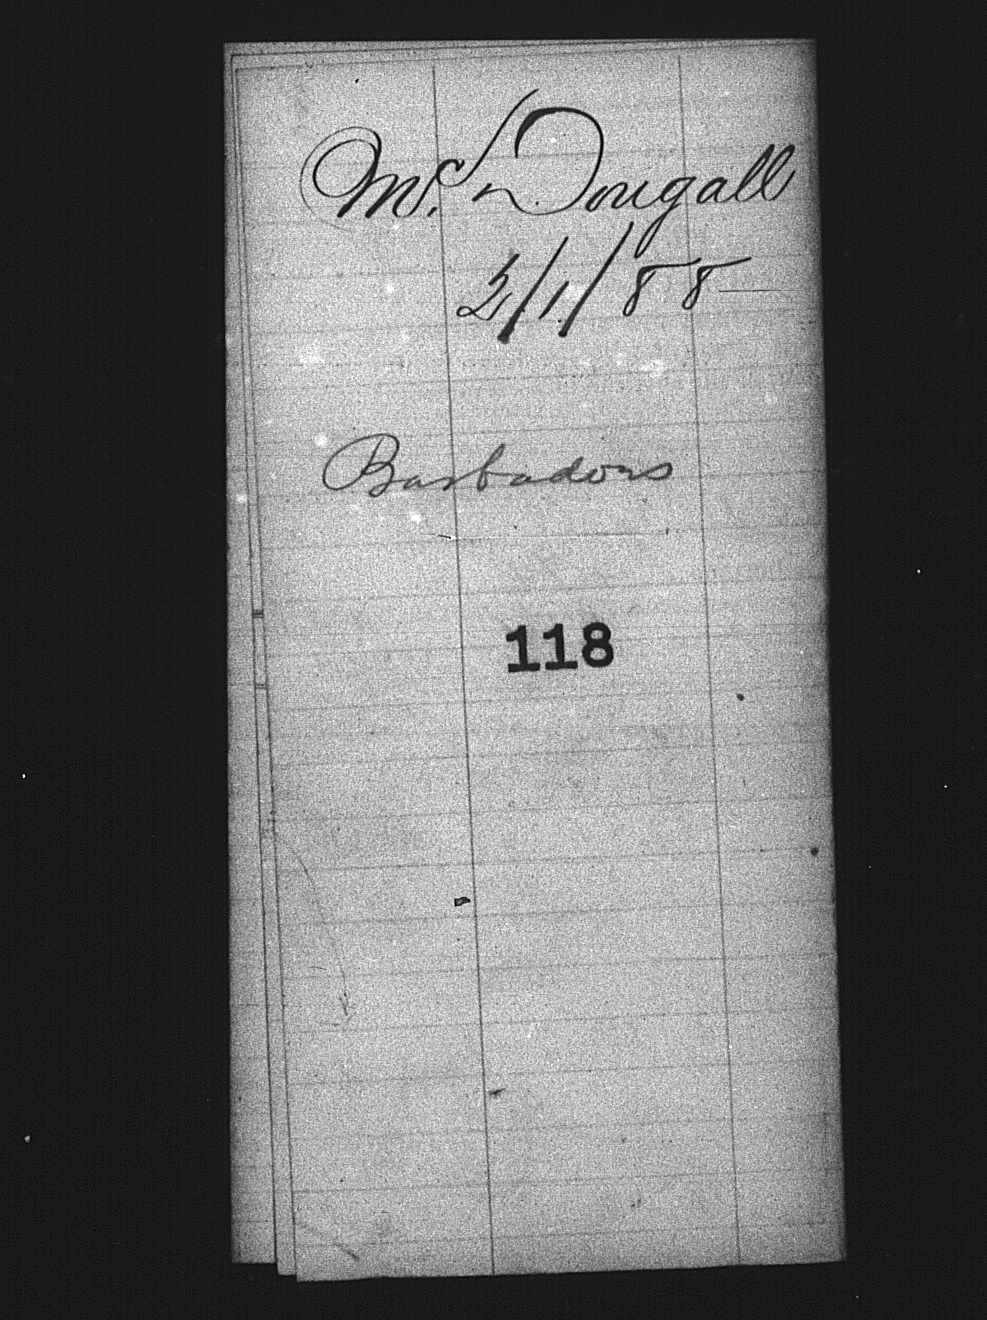 Mc. Dougall
3/1/88
Barbadoes
118